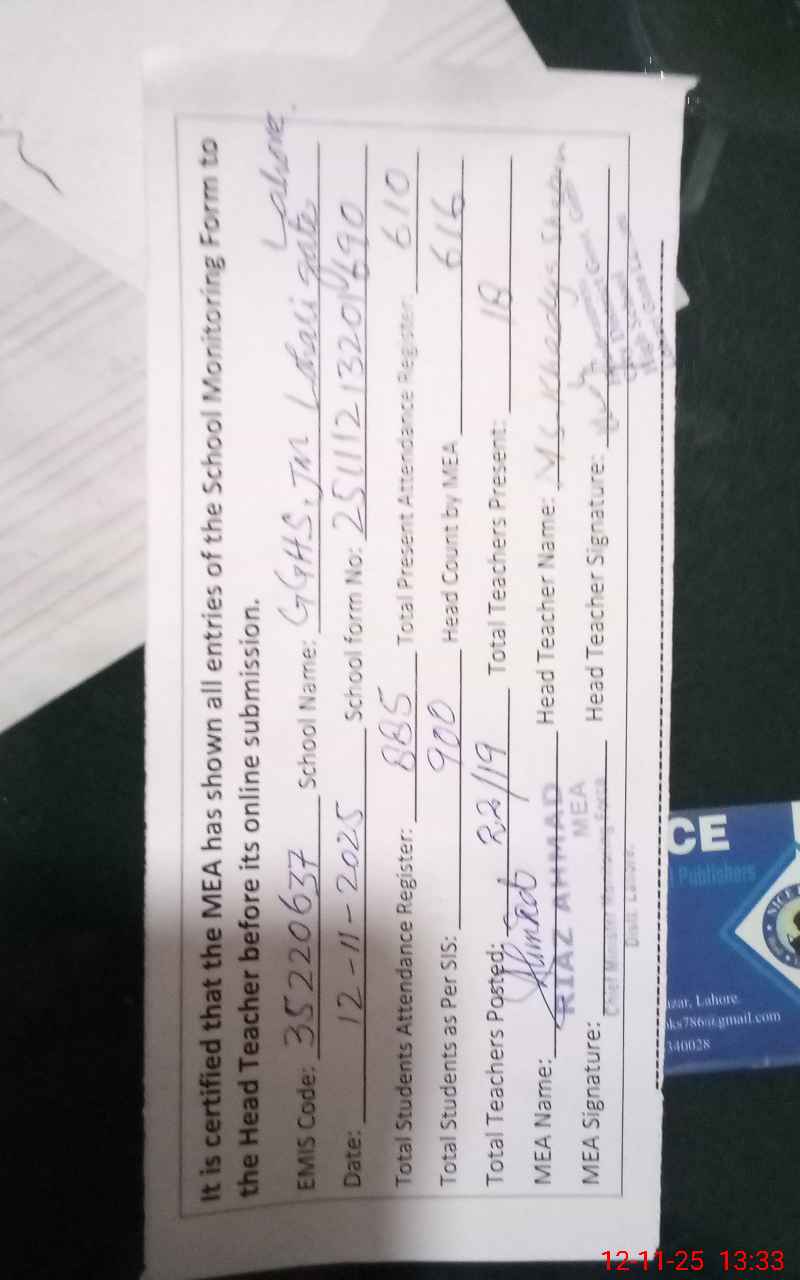 It is certified that the MEA has shown all entries of the School Monitoring Form to
the Head Teacher before its online submission.
EMIS Code: 35220637 School Name: GGHS JM Lohari gate Lahore.
Date: 12-11-2025 School form No:
Total Students Attendance Register: 885 Total Present Attendance Register: 610
Total Students as Per SIS: 900 Head Count by MEA 616
Total Teachers Posted: 22/19 Total Teachers Present: 18
MEA Name: RIAZ AHMAD Head Teacher Name:
MEA
MEA Signature: Head Teacher Signature:
Chief Minister Monitoring Force
Distt. Lahore.
High School
CE
Publishers
Lahore
@gmail.com
340028
12-11-25 13:33